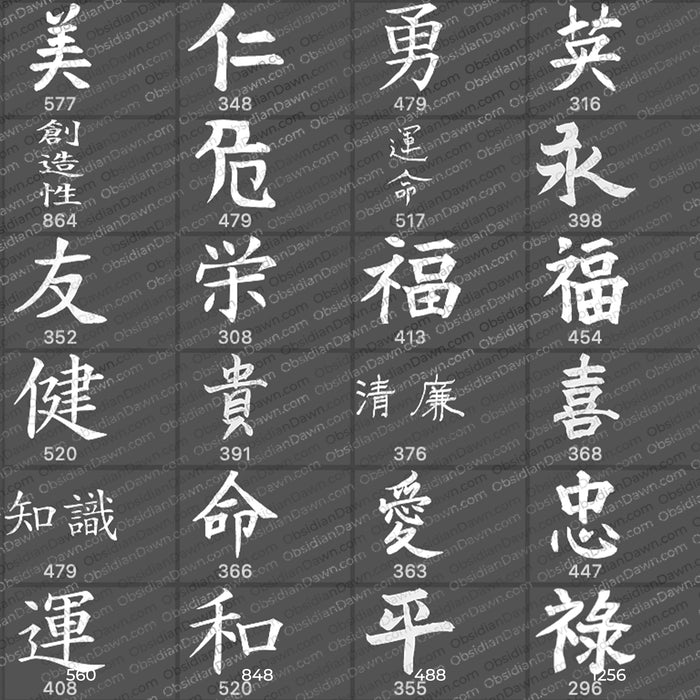 美 仁 勇 英
577 348 479 316
創造性 危 運命 永
864 479 517 398
友 栄 福 福
352 308 413 454
健 貴 清廉 喜
520 391 376 368
知識 命 愛 忠
479 366 363 447
運 和 平 祿
560 848 488 1256
408 520 355 296
ObsidianDawn.com